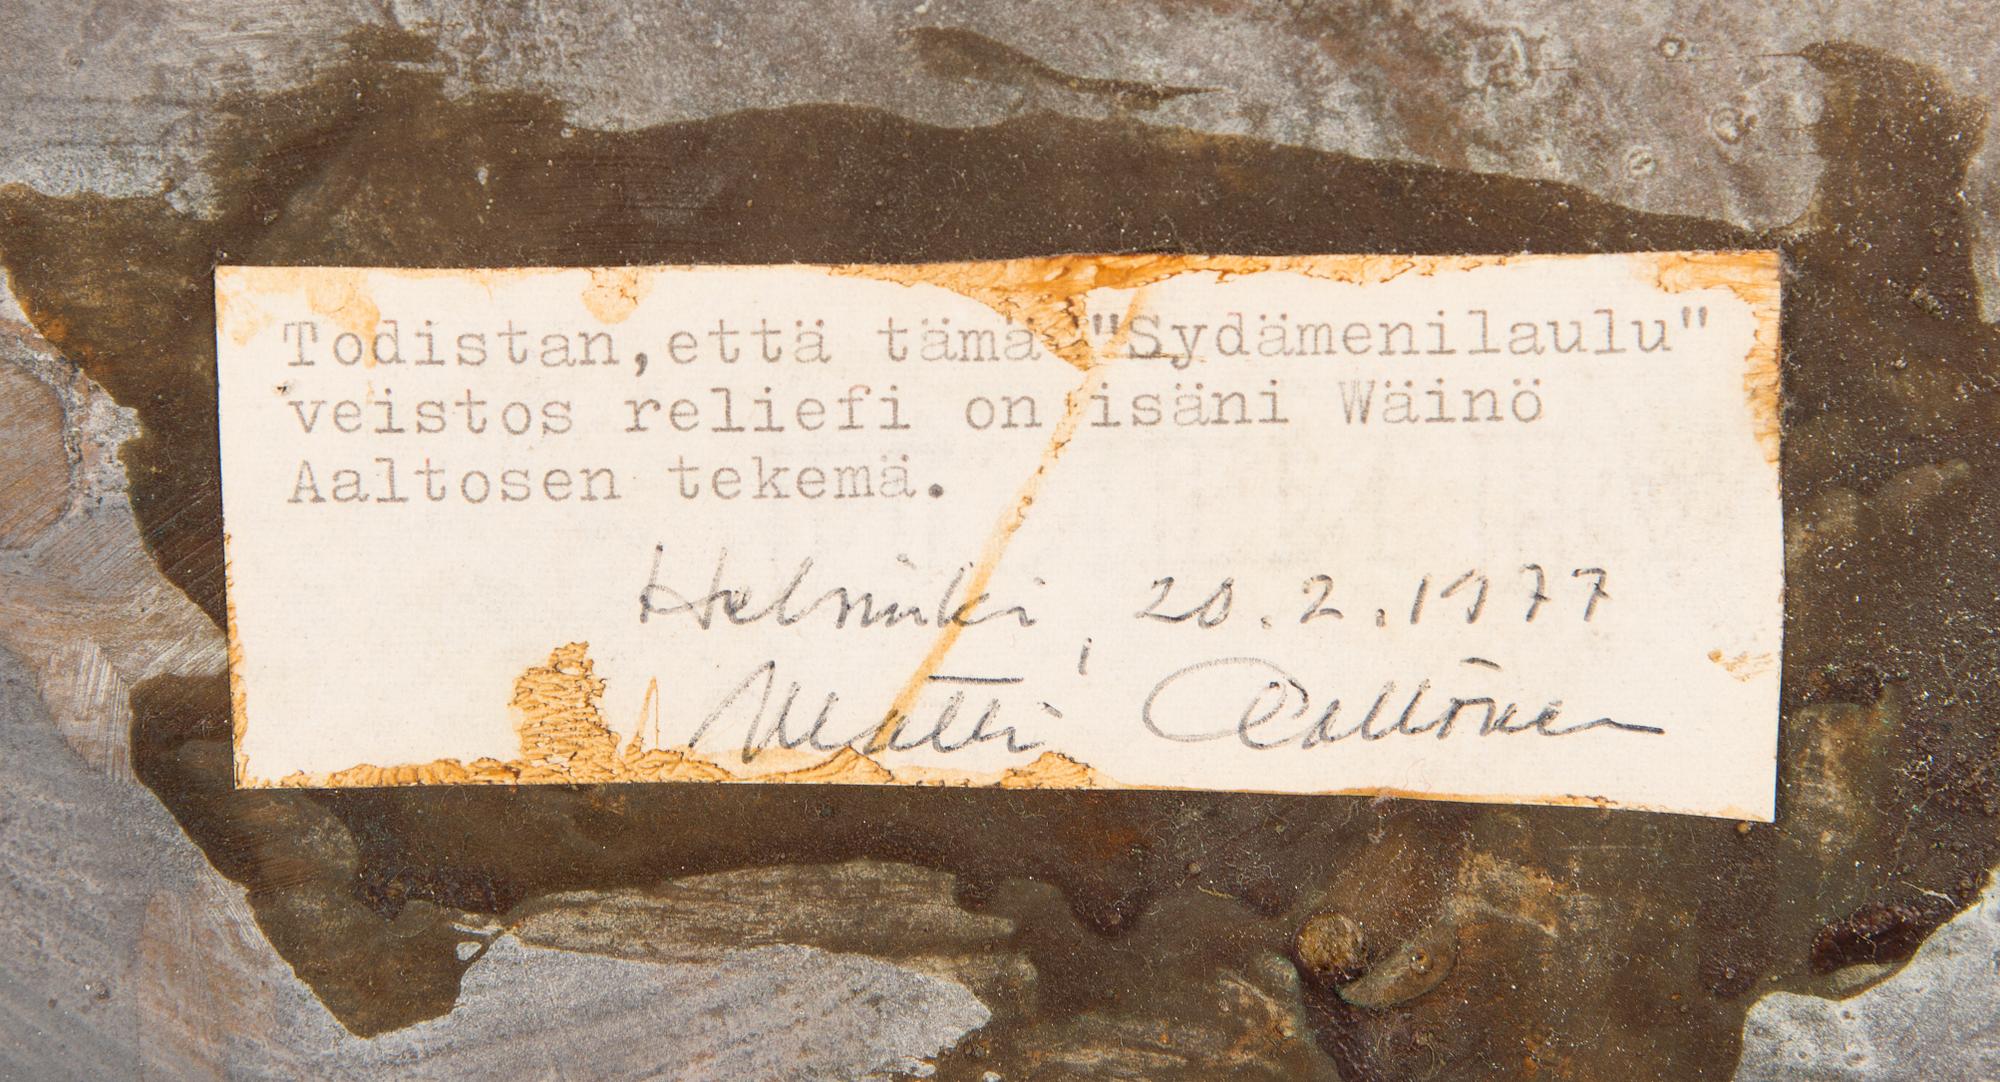 Todistan,että tämä "Sydämenilaulu"
veistos reliefi on isäni Wäinö
Aaltosen tekemä.
Helsinki, 20.2.1977
Matti Aaltonen